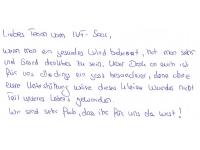 Liebes Team vom IVF-Saar,
wenn man ein gesundes Kind bekommt, hat man sehr
viel Grund dankbar zu sein. Aber Doch es auch ist
für uns ein ganz besonderer, denn ohne
eure Unterstützung wäre dieses kleine Wunder nicht
Teil unseres Lebens geworden.
Wir sind sehr froh, dass ihr für uns da wart!